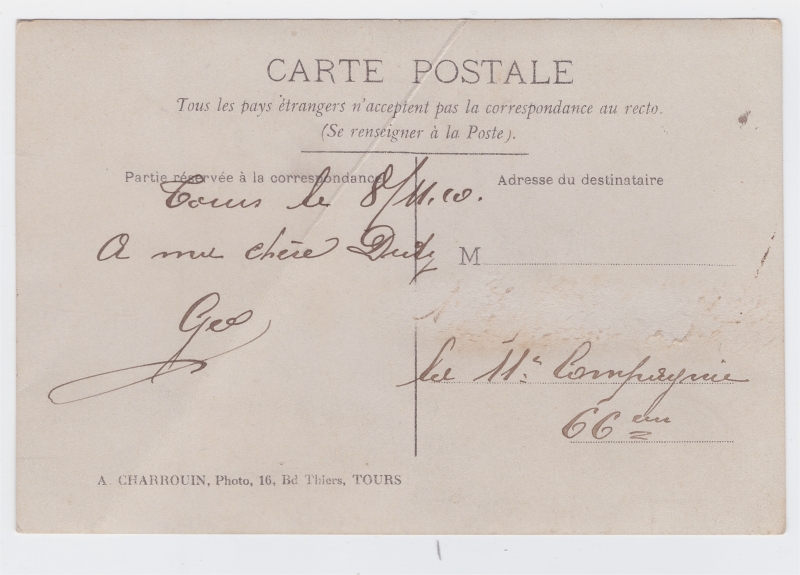 CARTE POSTALE
Tous les pays étrangers n'acceptent pas la correspondance au recto.
(Se renseigner à la Poste).
Partie réservée à la correspondance
Tours le 8/11.10.
A ma chère
Geo
Adresse du destinataire
M
la 11e Compagnie
66em
A. CHARROUIN, Photo, 16, Bd Thiers, TOURS